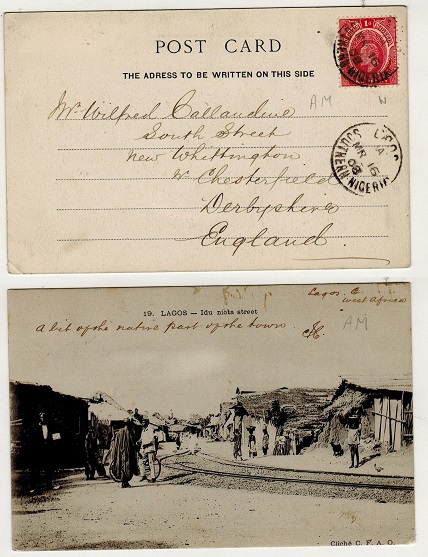 POST CARD
THE ADRESS TO BE WRITTEN ON THIS SIDE
1d
AM
Mr Wilfred Callandine
South Street
New Whittington
Nr Chesterfield
Derbyshire
England
LAGOS
A
MR 16
08
SOUTHERN NIGERIA
19. LAGOS — Idu niota street
Lagos
west Africa
A bit of the native part of the town
AM
Cliché C. F. A. O.